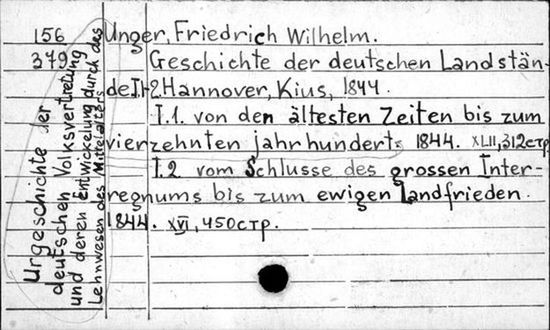 156 Unger, Friedrich Wilhelm.
379 Geschichte der deutschen Landstän-
de I+2. Hannover, Kius, 1844.
T.1. von den ältesten Zeiten bis zum
vierzehnten jahrhundert 1844. XLII, 312стр
T.2 vom Schlusse des grossen Inter-
regnums bis zum ewigen Landfrieden.
1844. XVI, 450стр.
Urgeschichte der
deutschen Volksvertretung
und deren Entwickelung durch das
Lehnwesen des Mittelalters